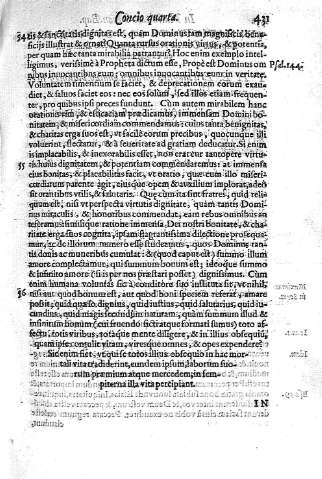 Concio quarta. 431
34 tis & sanctitatis dignitas est, quam Dominus tam magnificis bene-
ficijs illustrat & ornat? Quanta rursus orationis virtus, & potentia,
per quam hæc tanta mirabilia patrantur? Hoc enim exemplo intel-
ligimus, verissimè à Propheta dictum esse, Propè est Dominus om
nibus inuocantibus eum: omnibus inuocantibus eum in veritate. Psal. 144.
Voluntatem timentium se faciet, & deprecationem eorum exau-
diet, & saluos faciet eos: nec eos solùm, sed illos etiam frequen-
ter, pro quibus ipsi preces fundunt. Cùm autem mirabilem hanc
orationis vim, & efficaciam prædicamus, immensam Domini bo-
nitatem, & misericordiam commendamus: cuius tanta benignitas,
& charitas erga suos est, vt facilè eorum precibus, quocunque illi
voluerint, flectatur, & à seueritate ad gratiam deducatur. Si enim
is implacabilis, & inexorabilis esset, non
35 huius dignitatem, & potentiam commendaremus: at immensa
eius bonitas, & placabilitas facit, vt oratio, quæ eum illo miseri-
cordiarum parente agit, eiusque opem & auxilium implorat, adeò
sit omnibus vtilis, & salutaris. Quæ cùm ita sint fratres, quid reli-
quum est, nisi vt perspecta virtutis dignitate, quam tantis Domi-
nus miraculis, & honoribus commendat, eam rebus omnibus an
teferamus
ritate erga suos cognita, ipsum flagrantissima dilectione prosequa-
mur, ac de illorum numero esse studeamus, quos Dominus tan-
tis donis ac muneribus cumulat: & (quod caput est) summo illum
amore complectamur, qui summum bonum est; ideoque summo
& infinito amore (si is per nos præstari posset) dignissimus. Cùm
enim humana voluntas sic à conditore suo instituta sit, vt nihil,
36 nisi aut quod bonum est, aut quod boni speciem referat, amare
possit; quid quæso dignius, quid iustius, quid salutarius, quid iu-
cundius, quid magis secundùm naturam, quàm summum illud &
infinitum bonum
fectu, totis viribus, totáque mente diligere, & in illius obsequio,
quamipse
Sic denim fiet, vt qui se totos illius obsequio in hac mor-
tali vita tradiderint, eundem ipsum, laborum suo-
rum præmium atque mercedem, in sem-
piterna illa vita percipiant.
IN